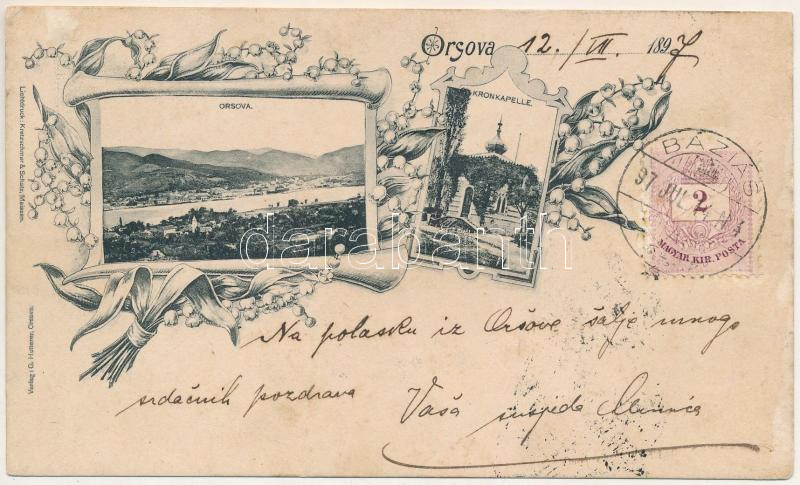 Orsova 12./VII. 1897
ORSOVA.
KRONKAPELLE.
BÁZIÁS
97 JUL.
2
MAGYAR KIR. POSTA
Lichtdruck: Kretzschmar & Schatz, Meissen.
Verlag: G. Hutterer, Orsova.
darabanth
Na polasku iz Oršove šalje mnogo
srdačnih pozdrava Vaša